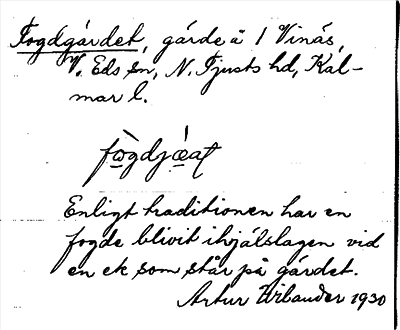 Fogdgärdet, gärde å 1 Vinäs,
V. Eds sn, N. Tjusts hd, Kal-
mar l.
Enligt traditionen har en
fogde blivit ihjälslagen vid
en ek som står på gärdet.
Artur Urbander 1930